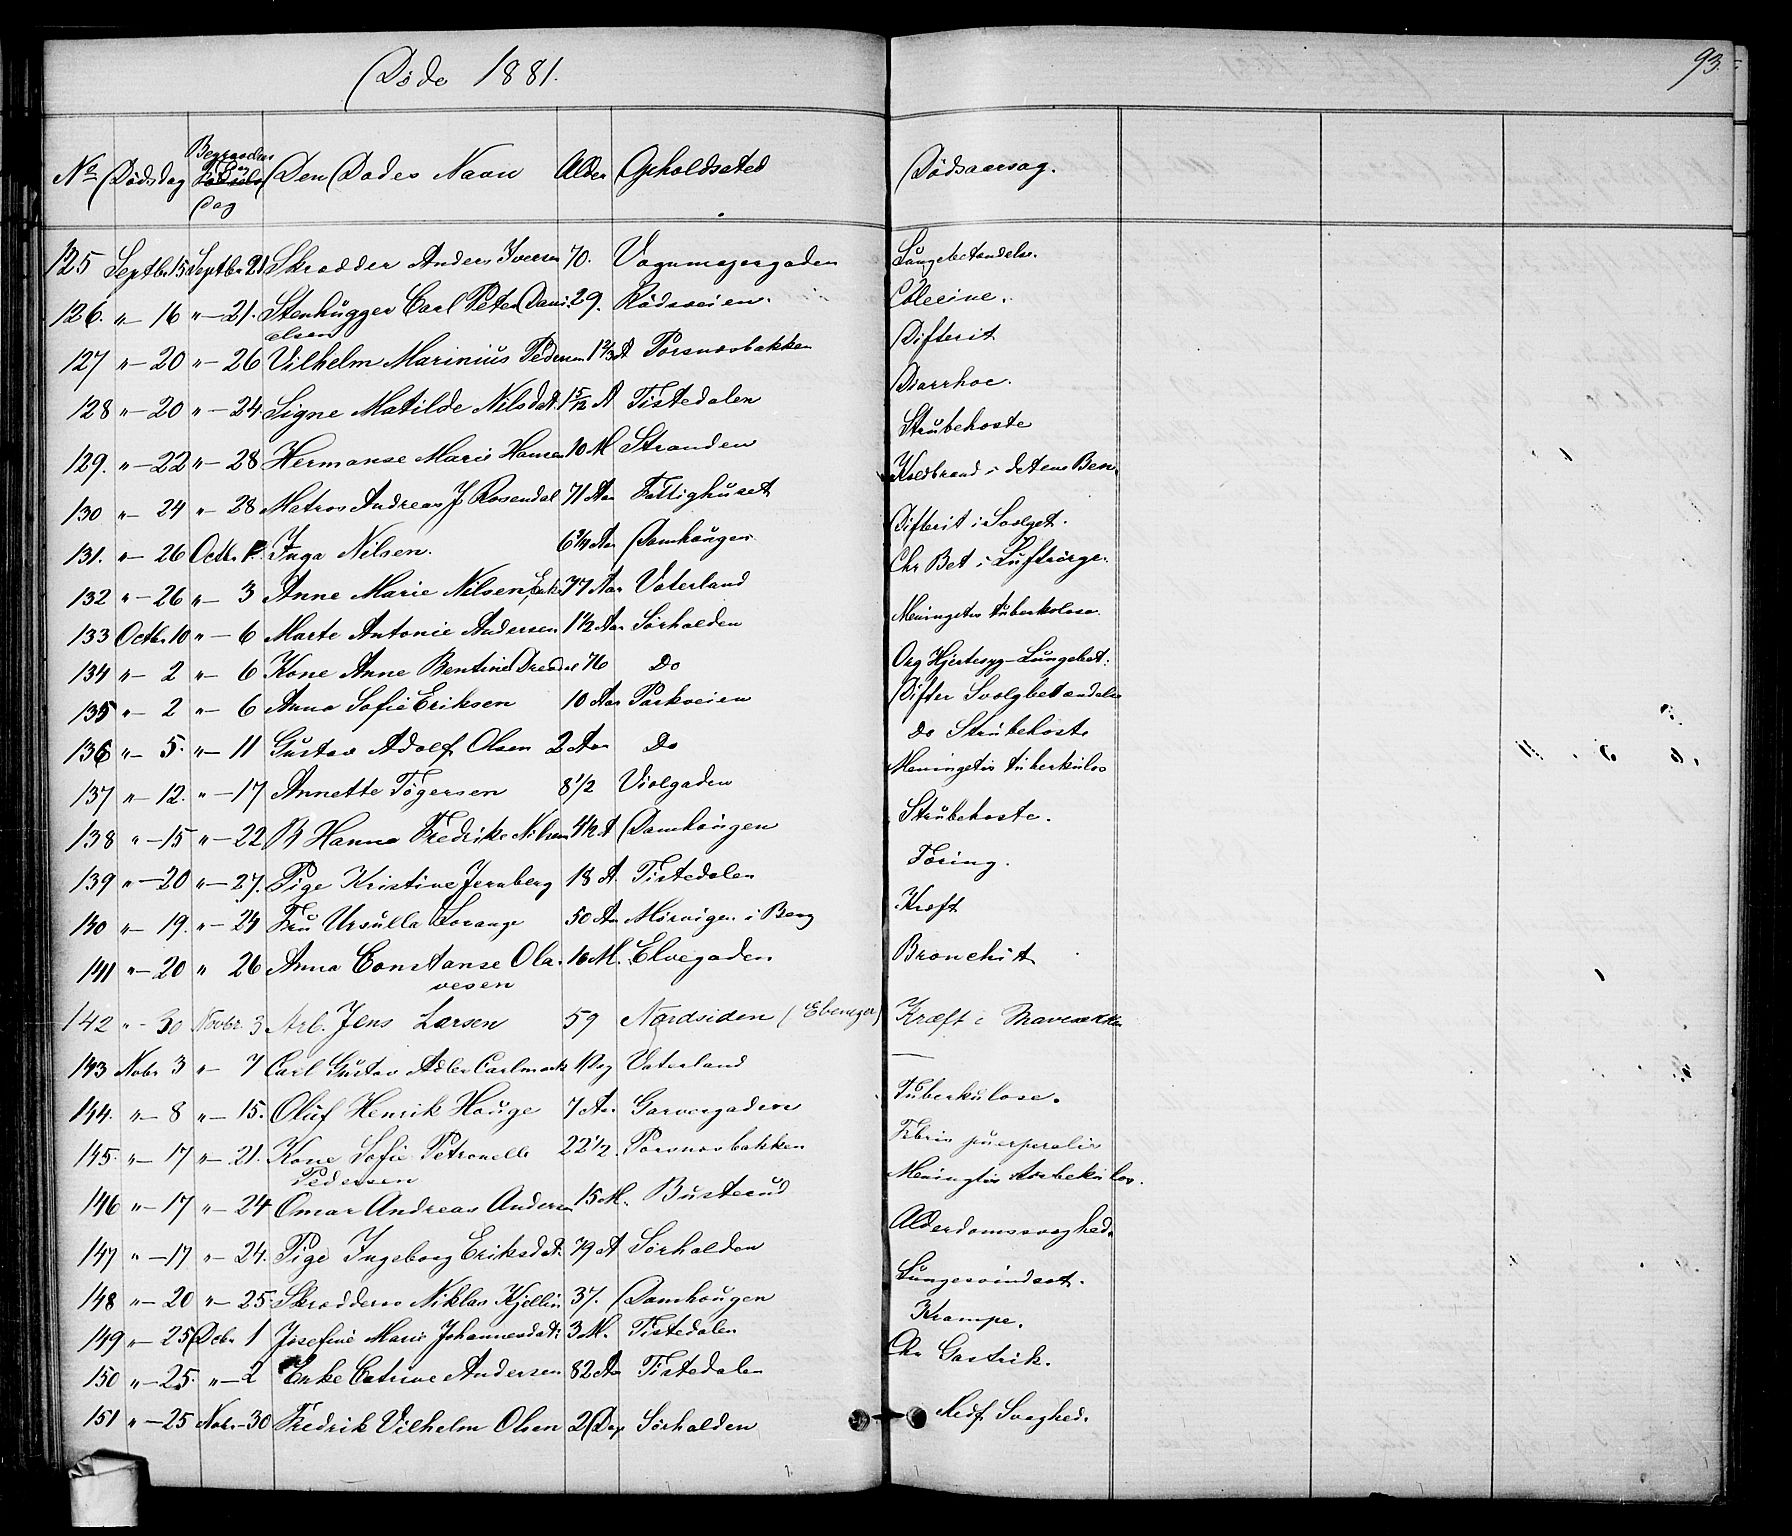 Døde 1881.
93.
No Dødsdag Begravelses Dag Den Dødes Navn Alder Opholdssted Dødsaarsag.
125 Septbr 15 Septbr 21 Skrædder Anders Iversen 70. Vognmagergaden Lungebetændelse.
126. " — 16 " — 21. Stenhugger Carl Peter Dani 29. Rødsveien. Colerine.
elsen
127 " — 20 " — 26 Vilhelm Marinius Pedersen 1 2/3 A Porsnæsbakken Difterit
128 " — 20 " — 24. Signe Matilde Nilsdat. 1 5/12 A Tistedalen Diarrhoe.
129. " — 22 " — 28 Hermanse Marie Hansen 10 M Stranden Strubehoste
130 " — 24 " — 28 Matros Andreas J Rosendal 71 Aar Fattighuset Koldbrand i det ene Ben.
131. " — 26 Octbr. Inga Nilsen. 6 3/4 Aar Damhaugen Difterit i Svolget.
132 " — 26 " — 3 Anne Marie Nilsen, Enke 77 Aar Vaterland Chr Bet i Luftrörge.
133 Octbr. 10 " — 6 Marte Antonie Andersen 1 1/2 Aar Sørhalden Meningetis tuberkolose.
134 " — 2 " — 6 Kone Anne Bentine 76 Do Org Hjertesyg — Lungebet.
135 " — 2 " — 6 Anna Sofie Eriksen 10 Aar Parkveien Difter Svolgbetændelse
136 " — 5. " — 11 Gustav Adolf Olsen 2 Aar Do do Strubehoste
137 " — 12. " — 17 Annette Tøgersen 8 1/2 Violgaden Meningetis tuberkulos
138 " — 15 " — 22 B Hanna Fredrike Nilsen 4 1/2 A Damhaugen Strubehoste.
139 " — 20 " — 27. Pige Kristine Jernberg 18 A. Tistedalen Tæring.
140 " — 19. " — 24 Fru Ursulla Lorange 50 Aar Mørvigen i Berg Kræft
141 " — 20 " 26 Anna Constanse Ola 16 M. Elvegaden Bronchit
vesen
142 " — 30 Novbr. 3 Arb. Jens Larsen 59 Nordsiden (Ebeneger) Kræft i Mavesækken
143 Nobr 3 " — 7 Carl Gustav Adler Carlmark 1 Dag Vaterland —
144. " — 8 " — 15. Oluf Henrik Hauge 7 Aar Garvergaden Tuberkulose.
145. " — 17 " — 21. Kone Sofie Petronelle 22 1/2 Porsnæsbakken Febris puerperalis
Pedersen
146 " — 17 " — 24 Omar Andreas Andersen 15 M. Busterud Meningtis tuberkulos.
147 " — 17 " — 24. Pige Ingeborg Eriksdat. 79 A Sørhalden Alderdomssvaghed.
148 " — 20 " — 25. Skrædders Niklas Kjellin 37. Damhaugen Lungesvindsot.
149 " — 25 Debr 1 Josefine Marie Johannesdat. 3 M. Tistedalen Krampe.
150 " — 25. " — 2 Enke Catrine Andersen 82 Aar Tistedalen Chr Gastrik.
151 " — 25 Nobr — 30 Fredrik Vilhelm Olsen 2 Dag Sørhalden Medf Svaghed.